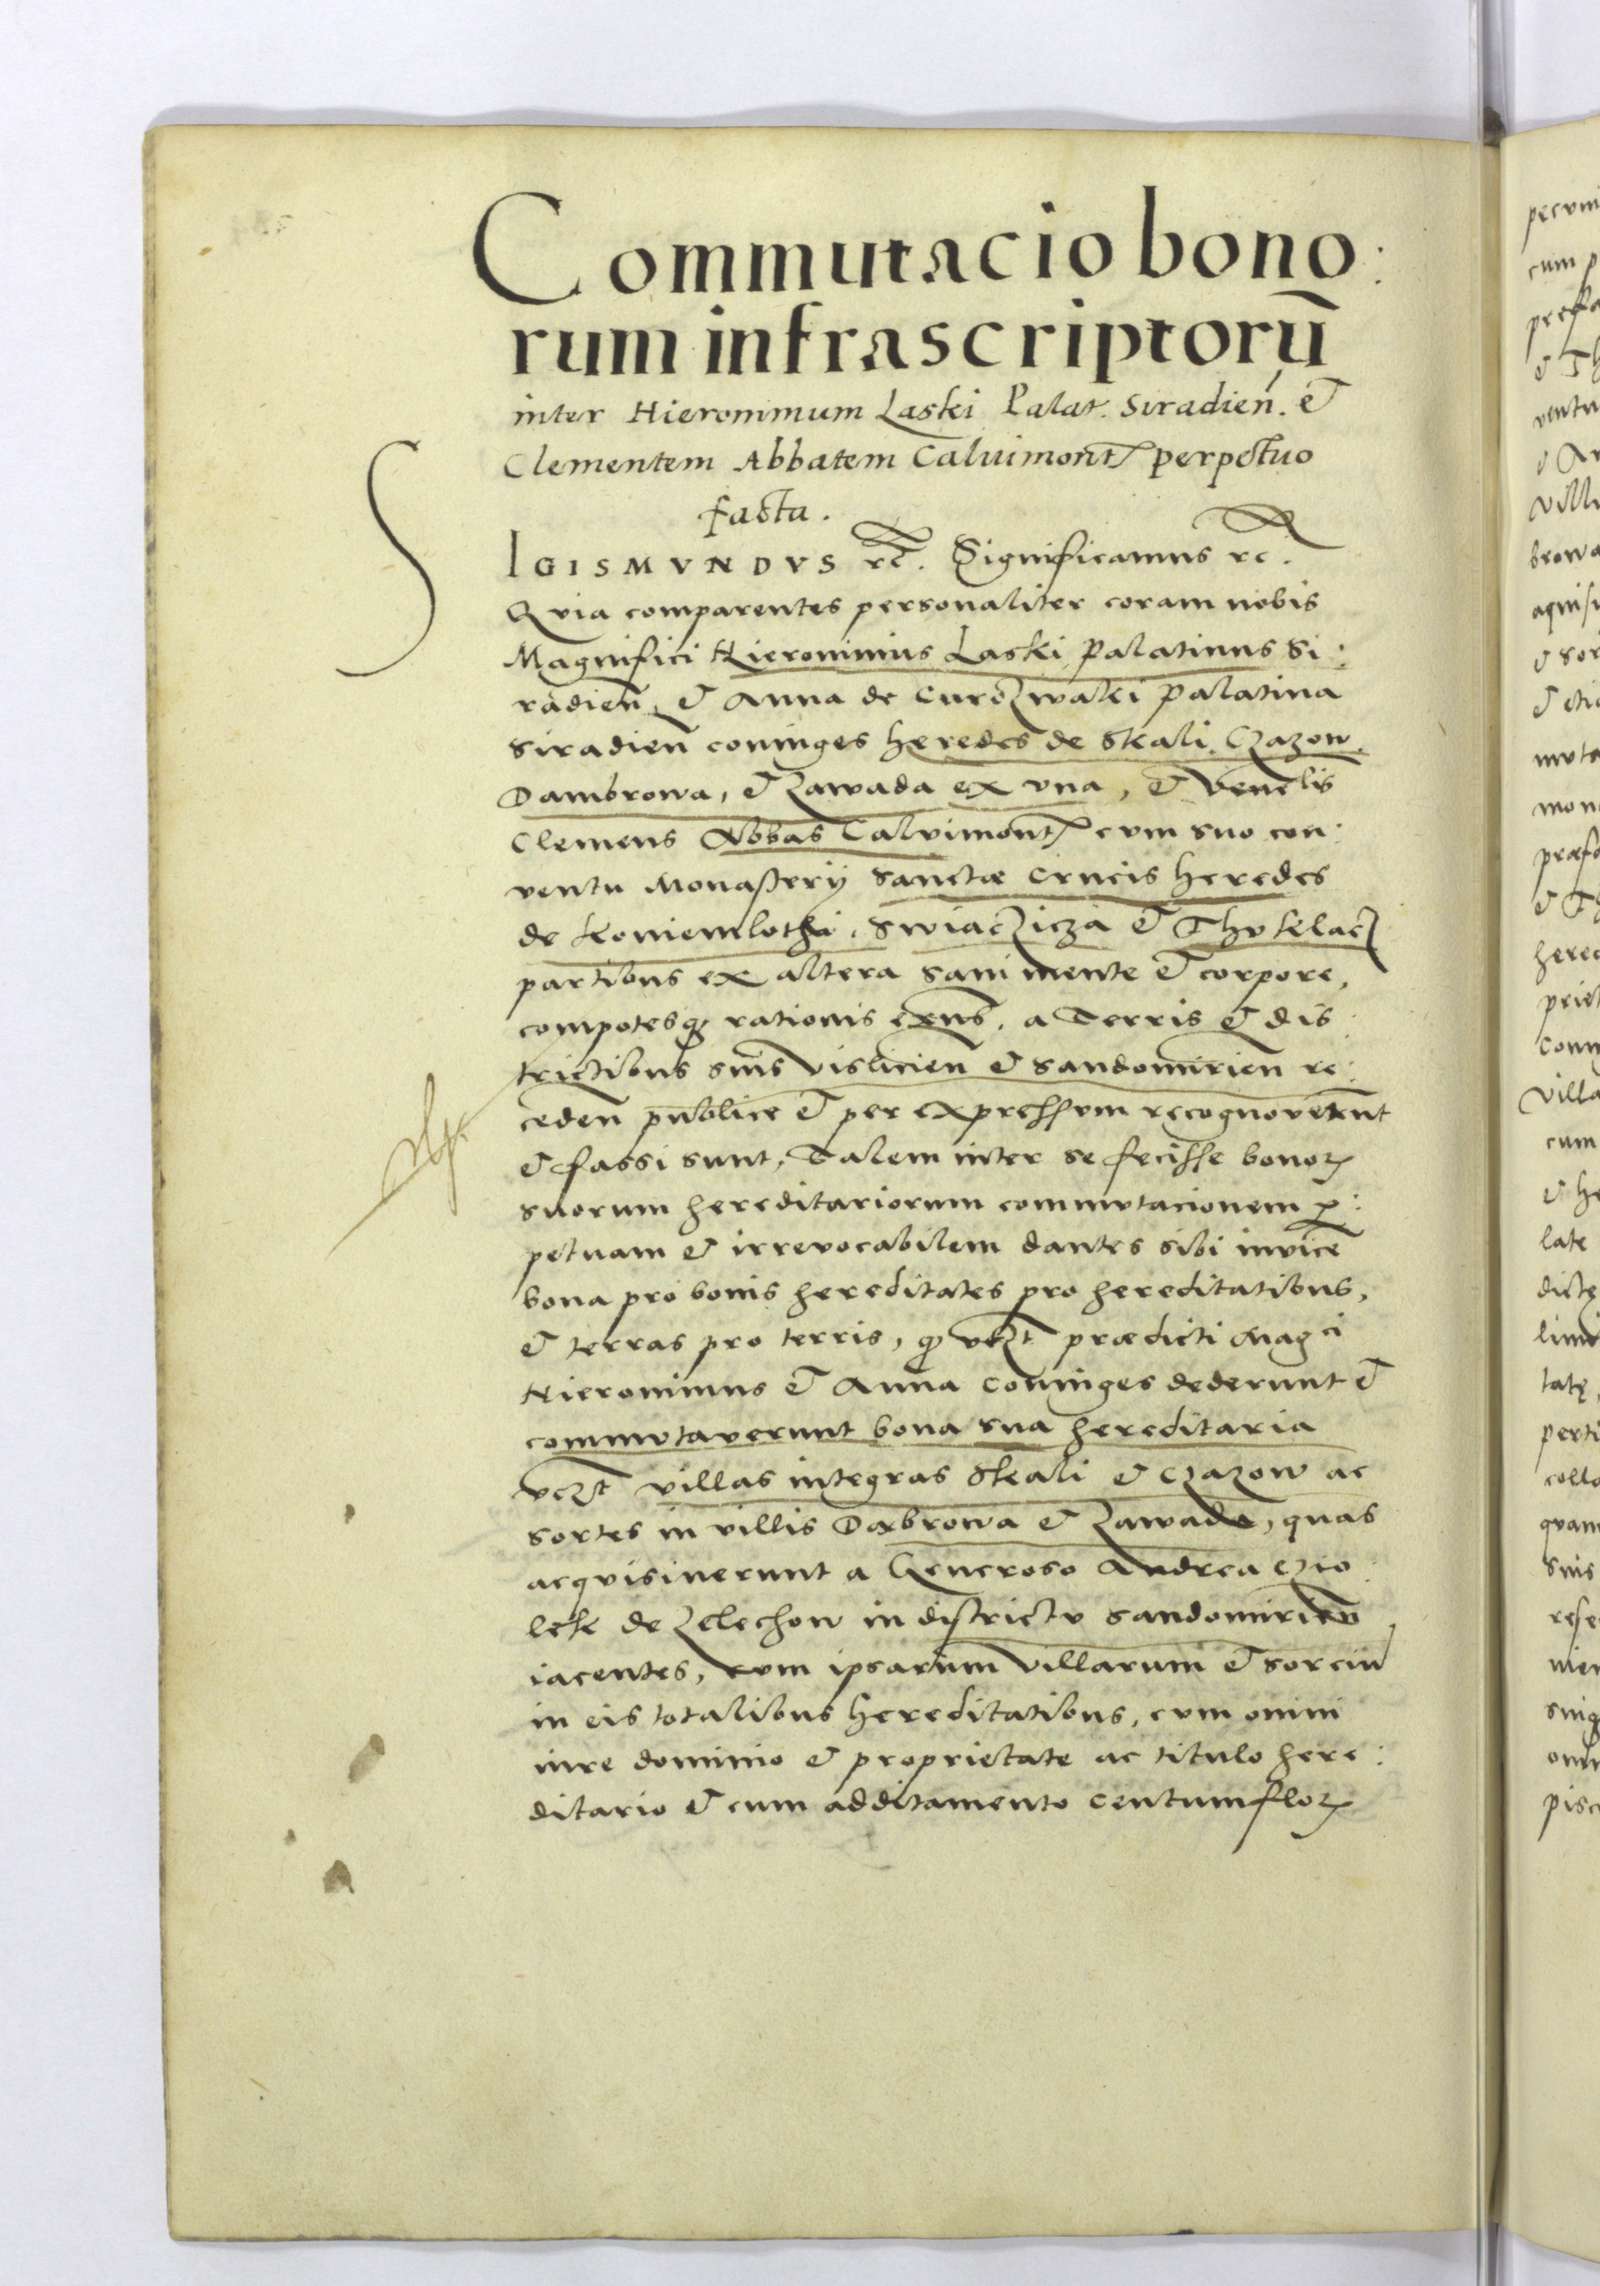 Commutacio bono:
rum infrascriptorū
inter Hieronimum Laski Palat. Siradien. et
Clementem Abbatem Calvimont perpetuo
facta.
SIGISMVNDVS etc. Significamus etc.
Qvia comparentes personaliter coram nobis
Magnifici Hieronimus Laski Palatinus Si:
radien̄, et Anna de Curozwaki Palatina
Siradien̄ coniuges heredes de Skali, Czazow,
Dambrowa, et Zawada ex vna, et Venelis
Clemens Abbas Calvimont cvm suo con:
ventu Monastery sanctæ crucis heredes
de Koniemlothi, Swiaczicza et Thvklacz
partibus ex altera sani mente et corpore,
compotesq rationis exns, a Terris et dis
trictibus suis Vislicien̄ et Sandomirien̄ re:
ceden̄ publice et per expressvm recognovernt
et fassi sunt, Talem inter se fecisse bonoꝝ
suorum hereditariorum commvtacionem ꝑ:
petuam et irrevocabilem dantes sibi invicē
bona pro bonis hereditates pro hereditatibus,
et terras pro terris, q vczt prædicti Magci
Hieronimus et Anna coniuges dederunt et
commvtaverunt bona sua hereditaria
vczt villas integras Skali et Czazow ac
sortes in villis Dąbrowa et Zawada, quas
acqvisiverunt a Generoso Andrea czio
lek de Zelechow in districtv Sandomirien̄
iacentes, cvm ipsarum villarum et sorciū
in eis totalibus hereditatibus, cvm omni
iure dominio et proprietate ac titulo here:
ditario et cum additamento centum floꝝ